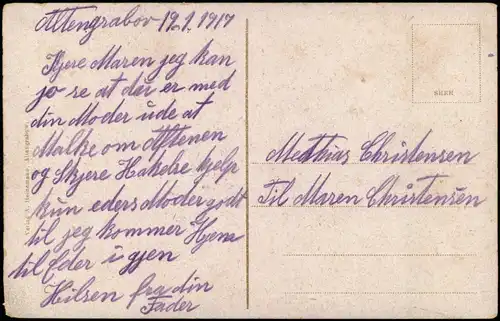 Altengrabov 19.1.1917
Kjere Maren jeg kan
jo se at du er med
din Moder ude at
Malke om Aftenen
og Skjere Hakelse hjelp
kun eders Moder godt
til jeg kommer Hjem
til Eder i gjen
Hilsen fra din
Fader
Matthias Christensen
Til Maren Christensen